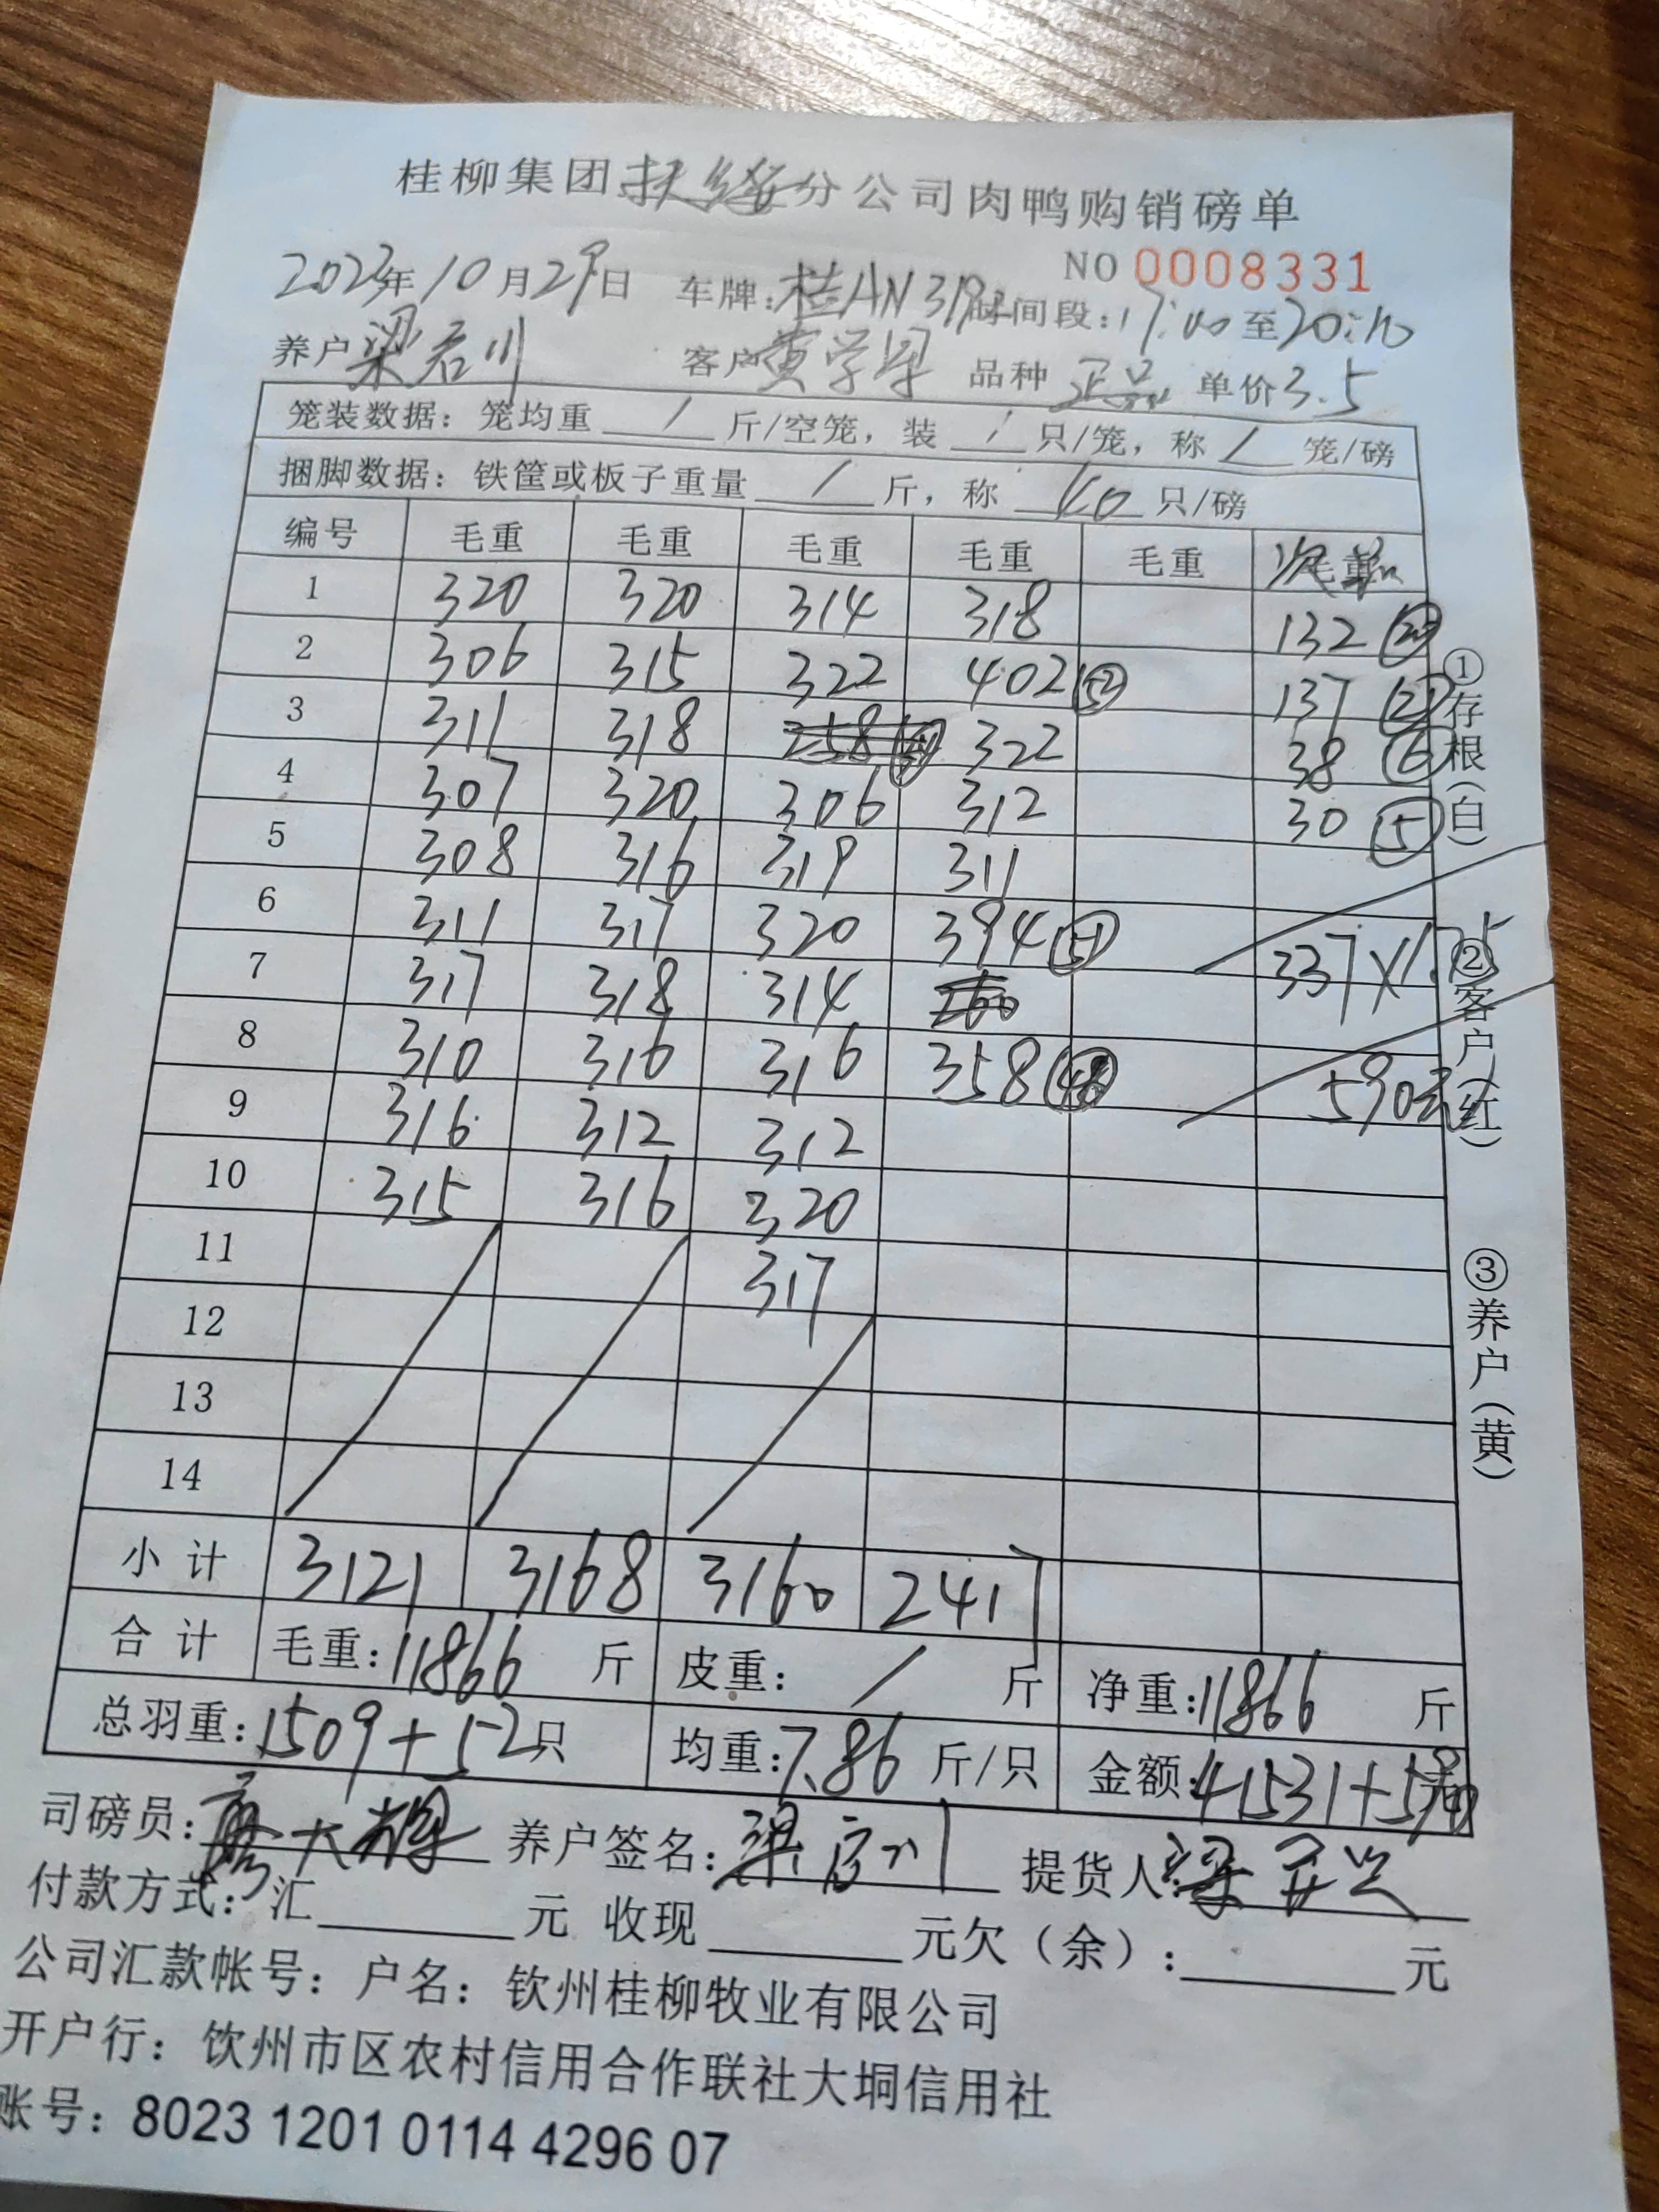 桂柳集团扶绥分公司肉鸭购销磅单
NO 0008331
2023年10月29日 车牌：桂AN319 时间段：17:00至20:10
养户 梁 川 客户 黄学 品种 正品 单价3.5
笼装数据：笼均重 / 斤/空笼，装 / 只/笼，称 / 笼/磅
捆脚数据：铁筐或板子重量 / 斤，称 40 只/磅
编号 毛重 毛重 毛重 毛重 毛重 毛重
1 320 320 314 318 132
2 306 315 322 402 52 137 21
3 311 318 258 322 38 6
4 307 320 306 312 30 5
5 308 316 319 311
6 311 317 320 394 51 337×1.75
7 317 318 314
8 310 316 316 358 48 590元
9 316 312 312
10 315 316 320
11 317
12
13
14
小计 3121 3168 3160 2417
合计 毛重：11866 斤 皮重： / 斤 净重：11866 斤
总羽重：1509+52只 均重：7.86 斤/只 金额：41531+590元
司磅员： 养户签名：梁 川 提货人：梁
付款方式：汇 元 收现 元欠（余）： 元
公司汇款帐号：户名：钦州桂柳牧业有限公司
开户行：饮州市区农村信用合作联社大垌信用社
账号：8023 1201 0114 4296 07
①存根（白）
②客户（红）
③养户（黄）